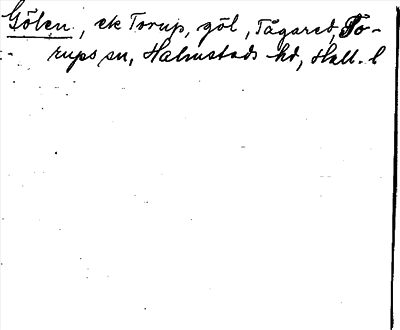 Gölen, ek Torup, göl, Tågared, To-
rups sn, Halmstads hd, Hall. l